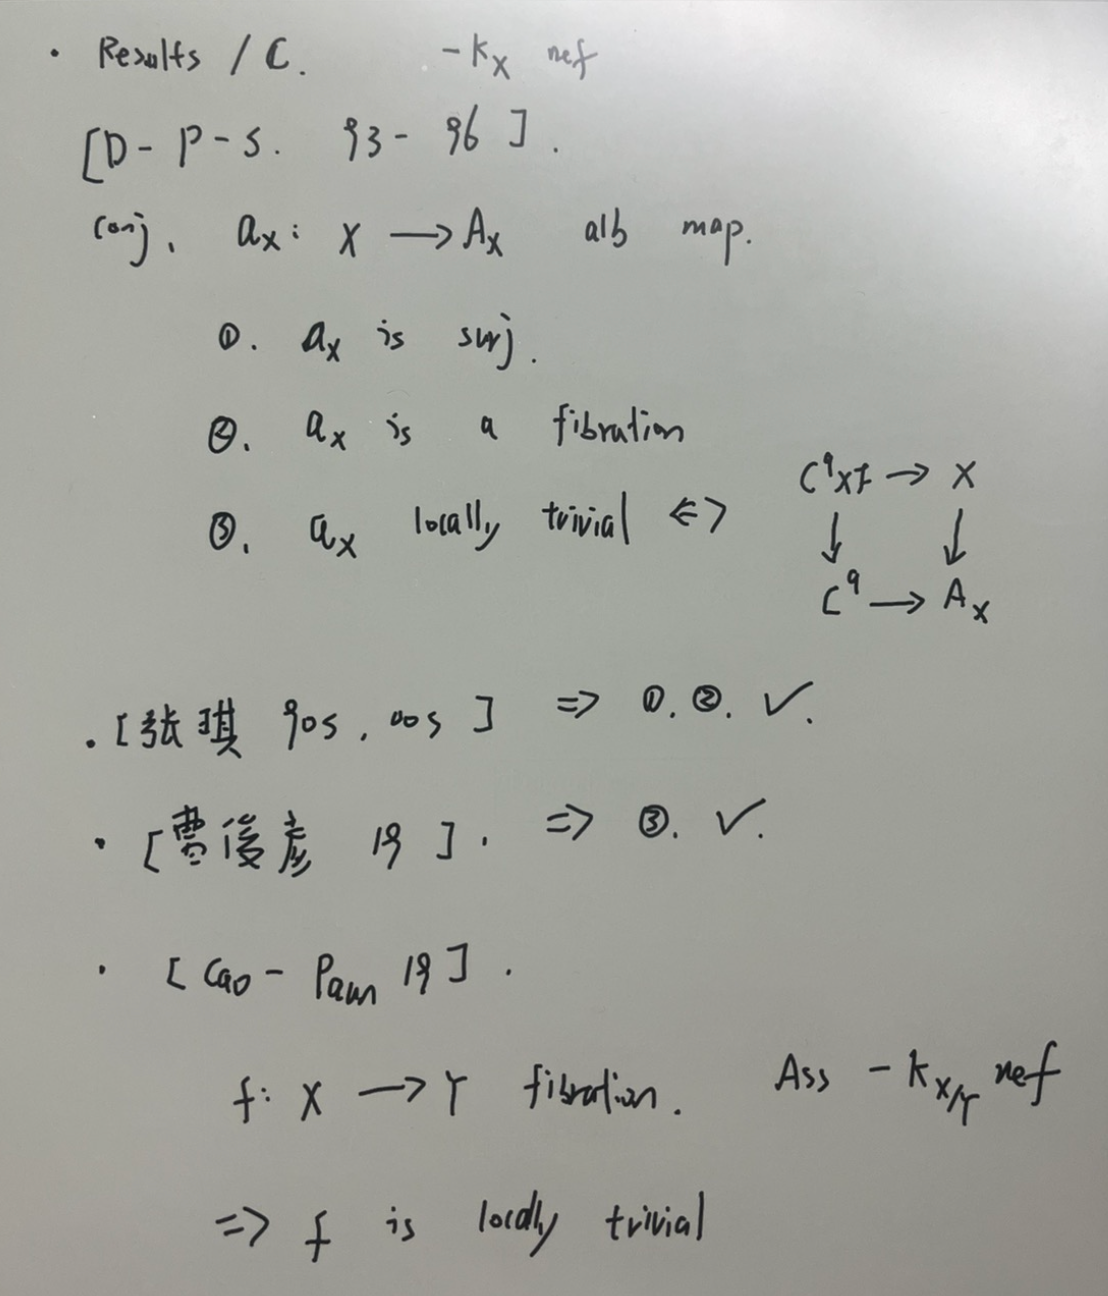 · Results / C. -Kx nef
[D-P-S. 93-96].
Conj. ax: X → Ax alb map.
①. ax is surj.
②. ax is a fibration
③. ax locally trivial <=> C^q×F → X
↓ ↓
C^q → Ax
· [张琪 90s, 00s] => ①. ②. ✓.
· [曹俊彦 19]. => ③. ✓.
· [Cao - Paun 19].
f: X → Y fibration. Ass -K_{X/Y} nef
=> f is locally trivial